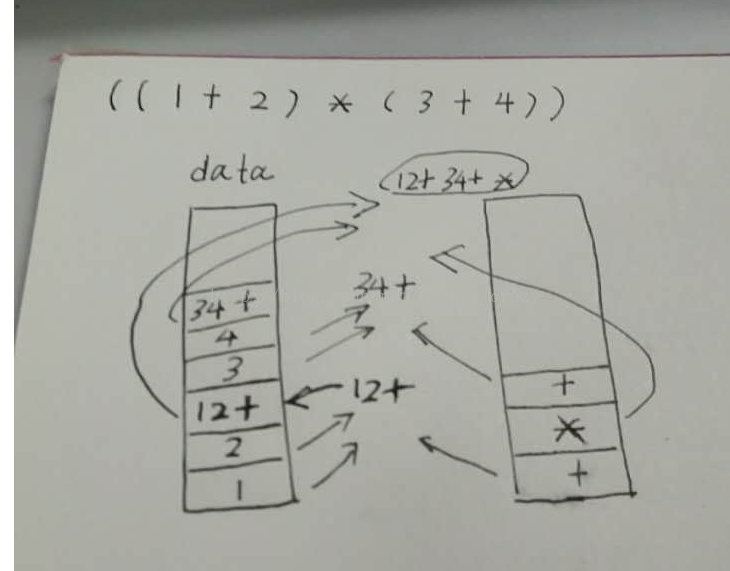 ((1+2)*(3+4))
data
12+34+*
34+
4
3
12+
2
1
34+
12+
+
*
+